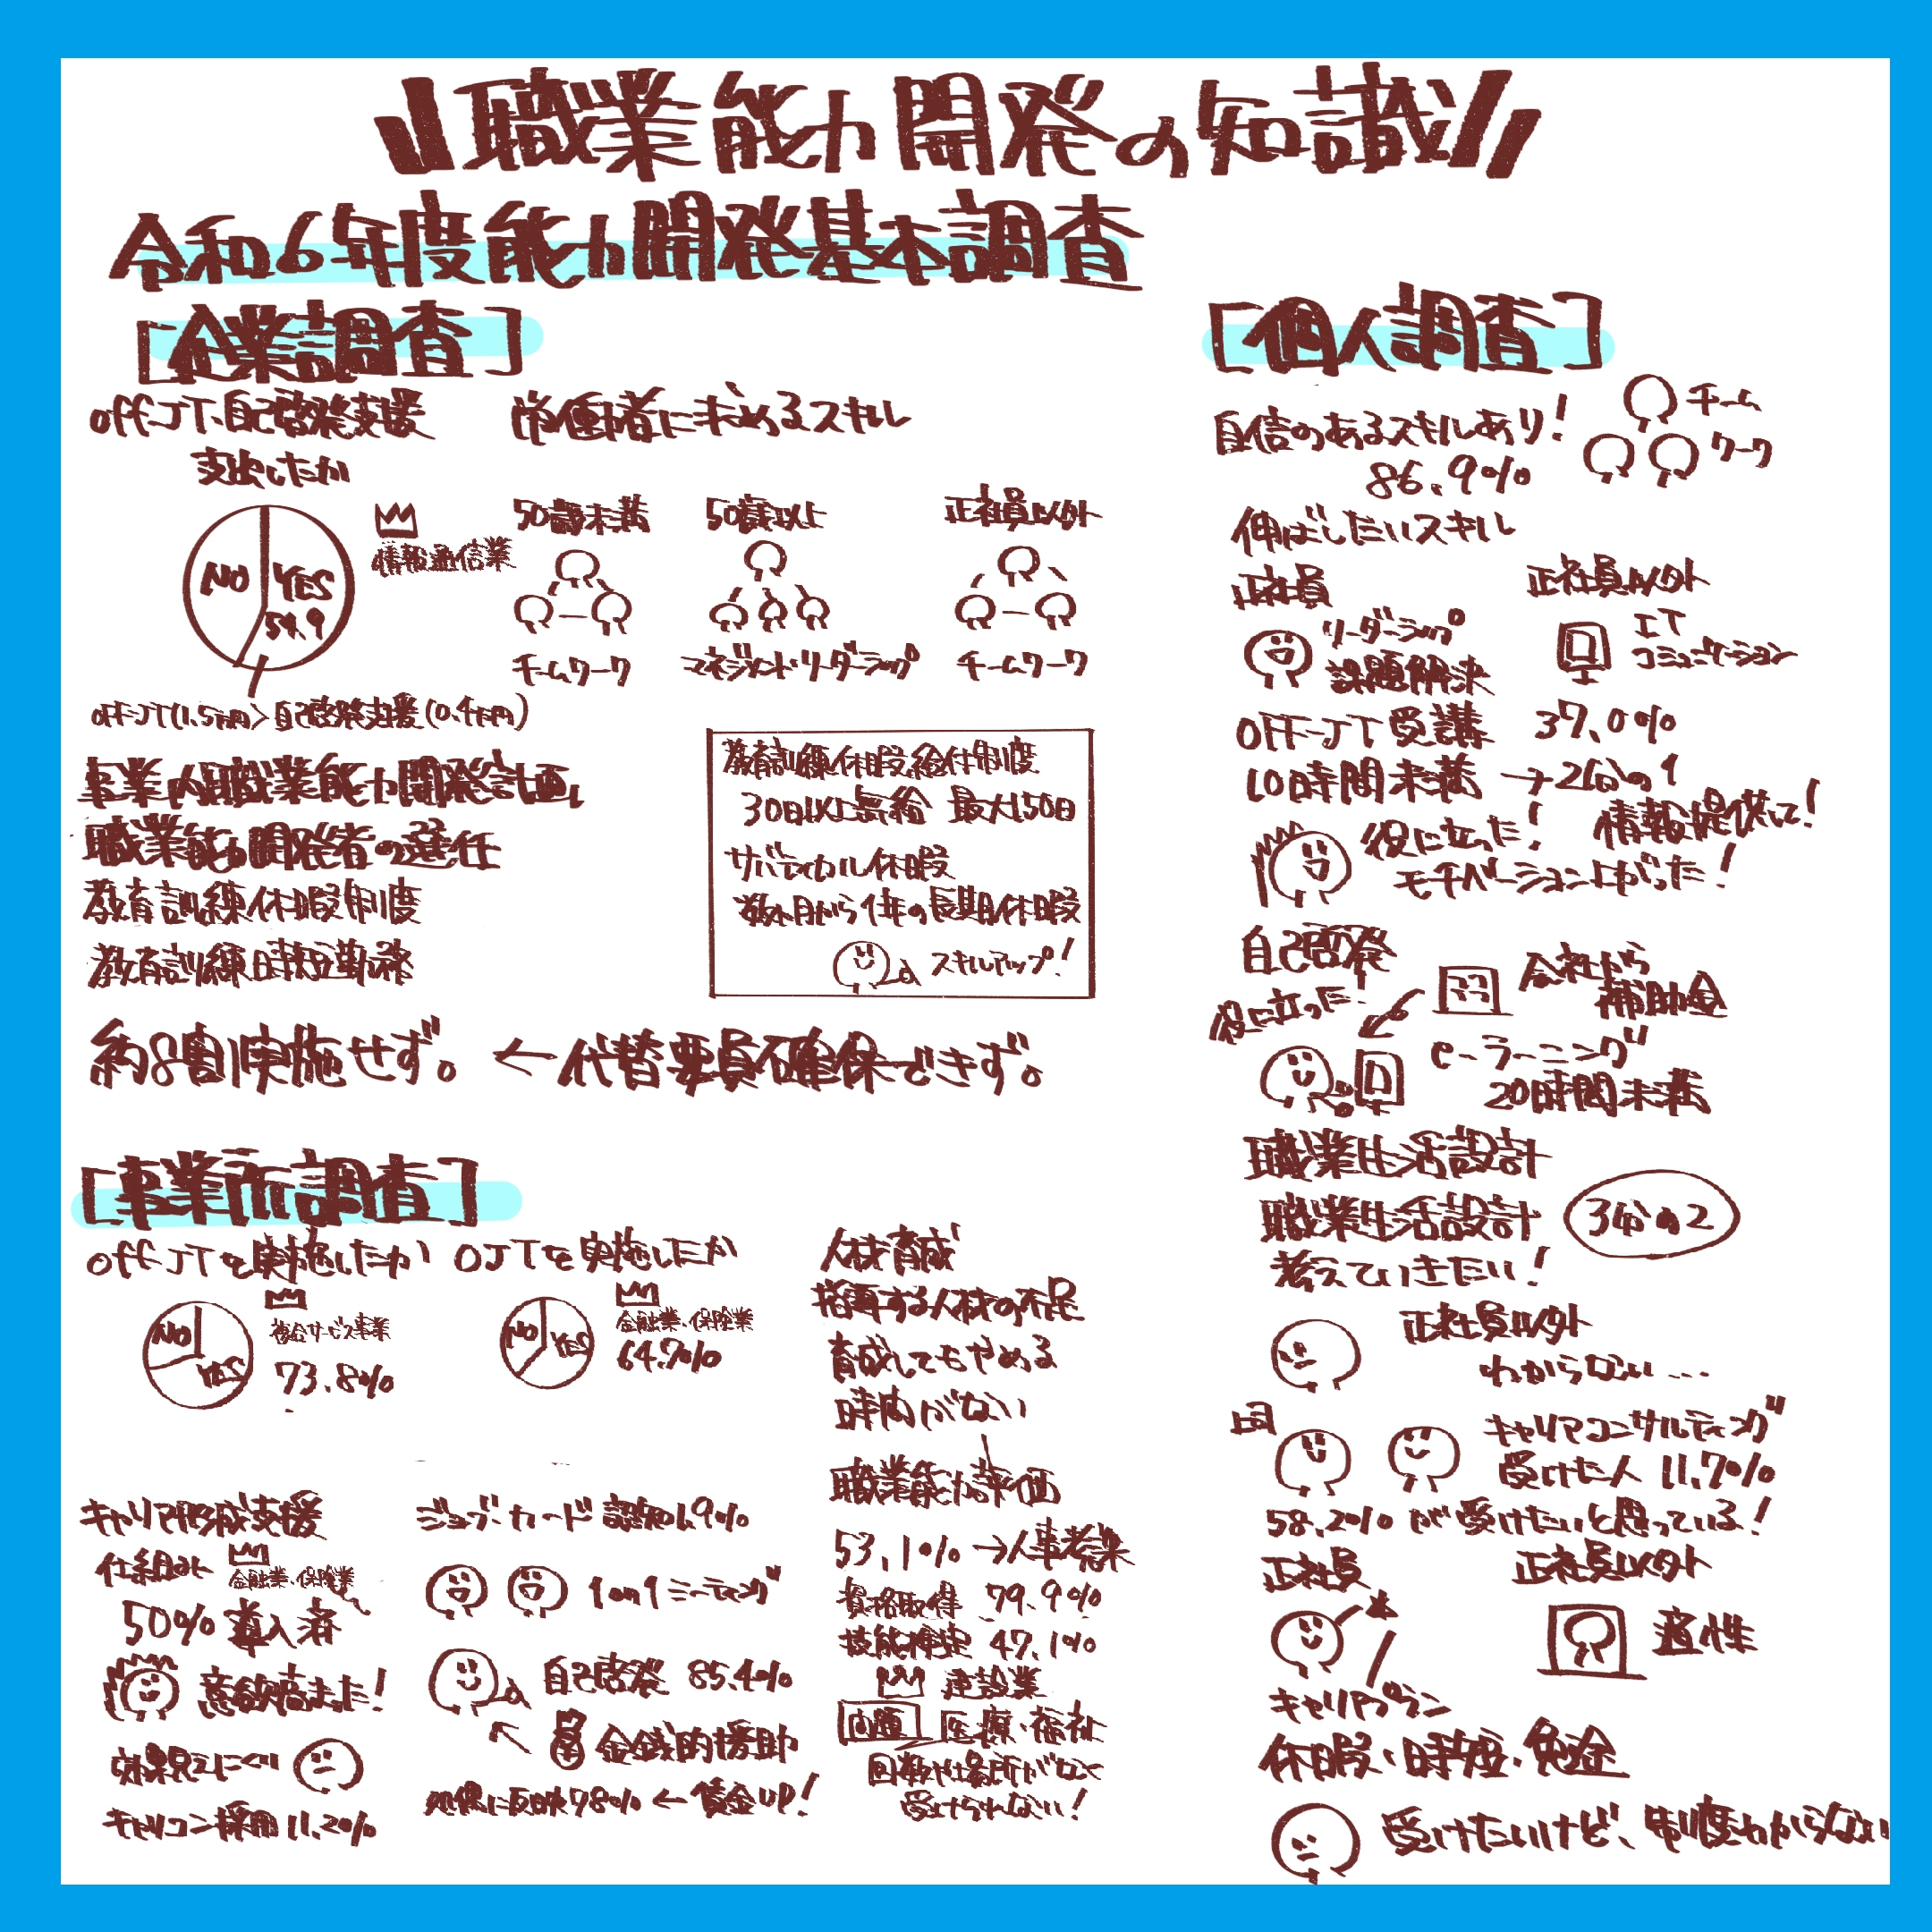 職業能力開発の知識
令和6年度能力開発基本調査
[企業調査]
off-JT、自己啓発支援
支出したか
NO YES
54.9
情報通信業
off-JT(1.5万円)>自己啓発支援(0.4万円)
労働者に求めるスキル
50歳未満
チームワーク
50歳以上
マネジメント・リーダーシップ
正社員以外
チームワーク
事業内職業能力開発計画
職業能力開発者の選任
教育訓練休暇制度
教育訓練時短勤務
教育訓練休暇給付制度
30日以上無給 最大150日
サバティカル休暇
数ヶ月から1年の長期休暇
スキルアップ!
約8割実施せず。←代替要員不確保できず。
[事業所調査]
offJTを実施したか
NO YES
複合サービス事業
73.8%
OJTを実施したか
NO YES
金融業、保険業
64.7%
人材育成
指導する人材の不足
育成してもやめる
時間がない
キャリア形成支援
仕組み
金融業、保険業
50%導入済
意欲高まった!
効果見えにくい
キャリコン採用11.2%
ジョブ・カード認知
1on1ミーティング
自己啓発 85.4%
金銭的援助
処遇に反映78%←賃金UP!
職業能力評価
53.1%→人事考課
資格取得 79.9%
技能検定 47.1%
建設業
問題 医療・福祉
回数や場所がなく
受けられない!
[個人調査]
自信のあるスキルあり!
86.9%
チーム
ワーク
伸ばしたいスキル
正社員
リーダーシップ
課題解決
正社員以外
IT
コミュニケーション
OFF-JT受講 37.0%
10時間未満 →2分の1
役に立った! 情報提供して!
モチベーション上がった!
自己啓発
役に立った!
会社から
補助金
e-ラーニング
20時間未満
職業生活設計
職業生活設計 3分の2
考えていきたい!
正社員以外
わからない…
上司
キャリアコンサルティング
受けた人 11.7%
58.2%が受けたいと思っている!
正社員
キャリアプラン
正社員以外
適性
休暇、時短、免金
受けたいけど、制度わからない